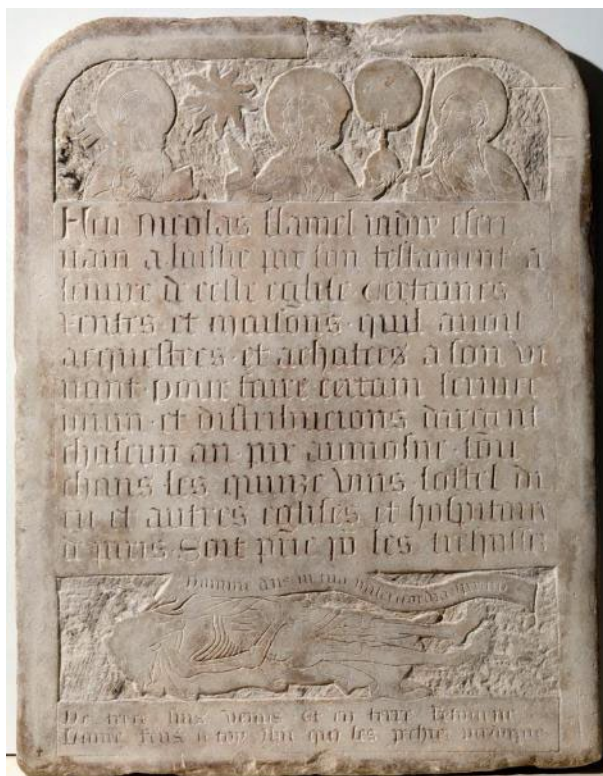 Feu nicolas flamel iadiz escri
uain a laissie par son testament a
leuure de ceste eglise certaines
rentes et maisons quil auoit
acquestees et achatees a son vi
uant pour faire certain seruice
diuin et distribucions dargent
chascun an par aumosne tou
chans les quinze vins lostel di
eu et autres eglises et hospitaux
de paris Soit prie po les trespassez
domine deus in tua misericordia speraui
De terre suis venus et en terre retourne
Lame rens a toy ihu qui les pechiez pardonne